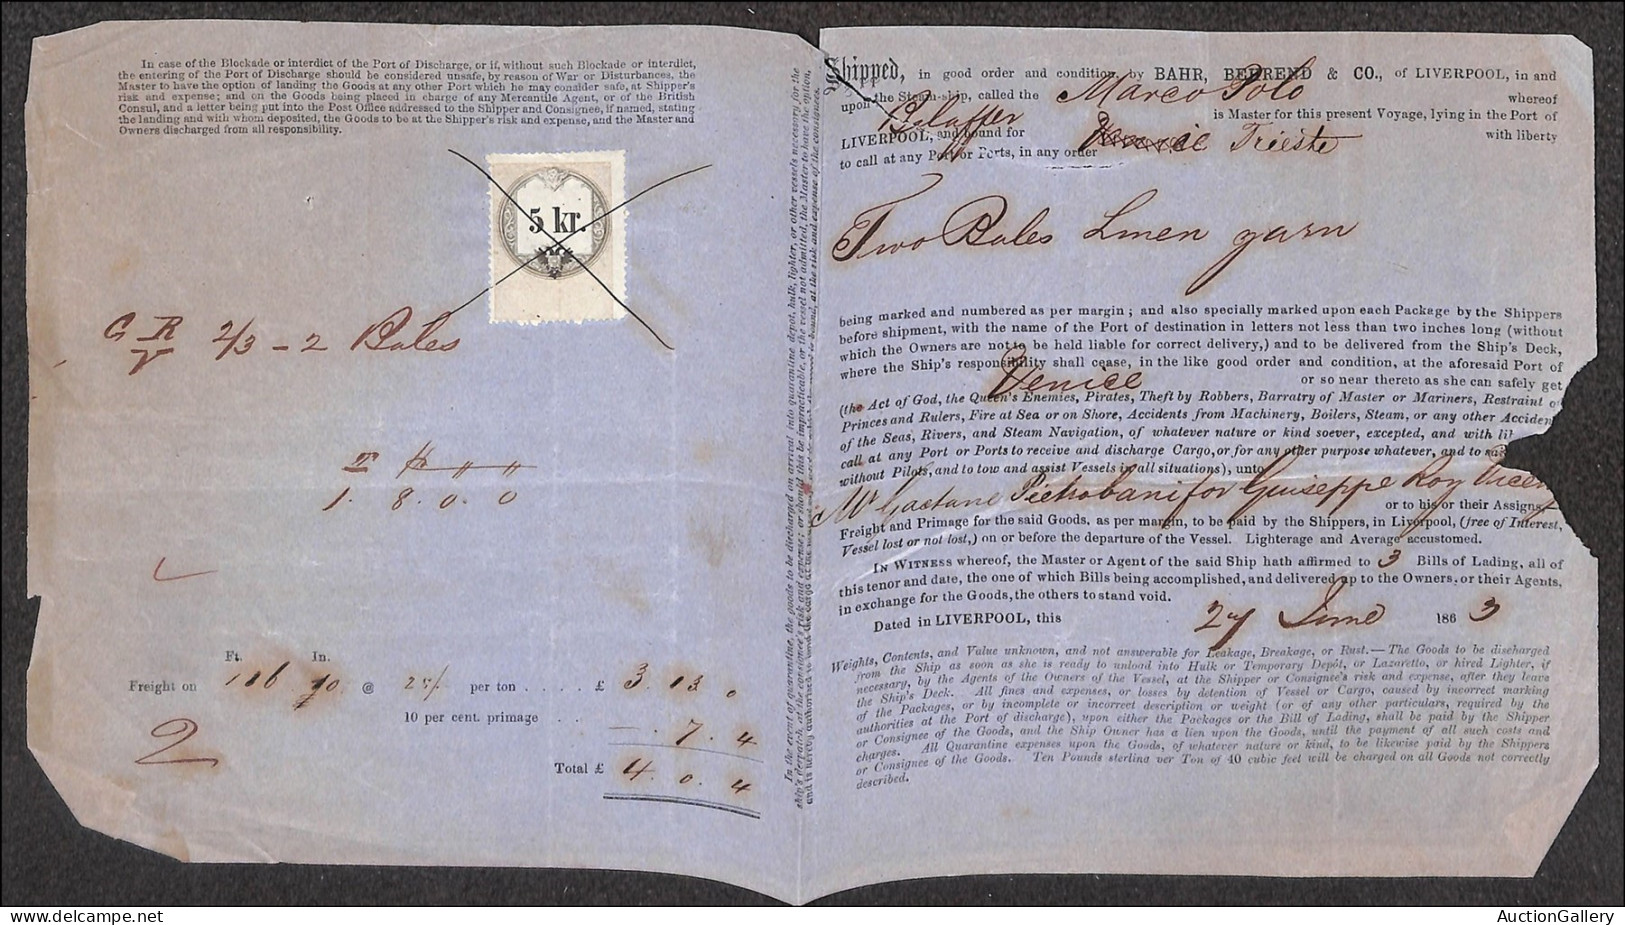 In case of the Blockade or interdict of the Port of Discharge, or if, without such Blockade or interdict,
the entering of the Port of Discharge should be considered unsafe, by reason of War or Disturbances, the
Master to have the option of landing the Goods at any other Port which he may consider safe, at Shipper's
risk and expense; and on the Goods being placed in charge of any Mercantile Agent, or of the British
Consul, and a letter being put into the Post Office addressed to the Shipper and Consignee, if named, stating
the landing and with whom deposited, the Goods to be at the Shipper's risk and expense, and the Master and
Owners discharged from all responsibility.
5 kr.
G R 2/3 - 2 Bales
V
1. 8. 0. 0
Ft. In.
Freight on 116 10 @ 25/. per ton . . . . £ 3 13 0
10 per cent. primage . . . 7. 4
Total £ 4. 0. 4
2
In the event of quarantine, the goods to be discharged on arrival into quarantine depot, hulk, lighter, or other vessels necessary for the
Shipped, in good order and condition, by BAHR, BEHREND & CO., of LIVERPOOL, in and
upon the Steam-ship, called the Marco Polo whereof
is Master for this present Voyage, lying in the Port of
LIVERPOOL, and bound for Venice Trieste with liberty
to call at any Port or Ports, in any order
Two Bales Linen yarn
being marked and numbered as per margin; and also specially marked upon each Package by the Shippers
before shipment, with the name of the Port of destination in letters not less than two inches long (without
which the Owners are not to be held liable for correct delivery,) and to be delivered from the Ship's Deck,
where the Ship's responsibility shall cease, in the like good order and condition, at the aforesaid Port of
Venice or so near thereto as she can safely get
(the Act of God, the Queen's Enemies, Pirates, Theft by Robbers, Barratry of Master or Mariners, Restraint o
Princes and Rulers, Fire at Sea or on Shore, Accidents from Machinery, Boilers, Steam, or any other Acciden
of the Seas, Rivers, and Steam Navigation, of whatever nature or kind soever, excepted, and with lib
call at any Port or Ports to receive and discharge Cargo, or for any other purpose whatever, and to sa
without Pilots, and to tow and assist Vessels in all situations), unto
Mr Gaetano Pietroboni for Giuseppe Roy
or to his or their Assigns,
Freight and Primage for the said Goods, as per margin, to be paid by the Shippers, in Liverpool, (free of Interest,
Vessel lost or not lost,) on or before the departure of the Vessel. Lighterage and Average accustomed.
IN WITNESS whereof, the Master or Agent of the said Ship hath affirmed to 3 Bills of Lading, all of
this tenor and date, the one of which Bills being accomplished, and delivered up to the Owners, or their Agents,
in exchange for the Goods, the others to stand void.
Dated in LIVERPOOL, this 27 June 1863
Weights, Contents, and Value unknown, and not answerable for Leakage, Breakage, or Rust.—The Goods to be discharged
from the Ship as soon as she is ready to unload into Hulk or Temporary Depôt, or Lazaretto, or hired Lighter, if
necessary, by the Agents of the Owners of the Vessel, at the Shipper or Consignee's risk and expense, after they leave
the Ship's Deck. All fines and expenses, or losses by detention of Vessel or Cargo, caused by incorrect marking
of the Packages, or by incomplete or incorrect description or weight (or of any other particulars, required by the
authorities at the Port of discharge), upon either the Packages or the Bill of Lading, shall be paid by the Shipper
or Consignee of the Goods, and the Ship Owner has a lien upon the Goods, until the payment of all such costs and
charges. All Quarantine expenses upon the Goods, of whatever nature or kind, to be likewise paid by the Shippers
or Consignee of the Goods. Ten Pounds sterling per Ton of 40 cubic feet will be charged on all Goods not correctly
described.
AuctionGallery